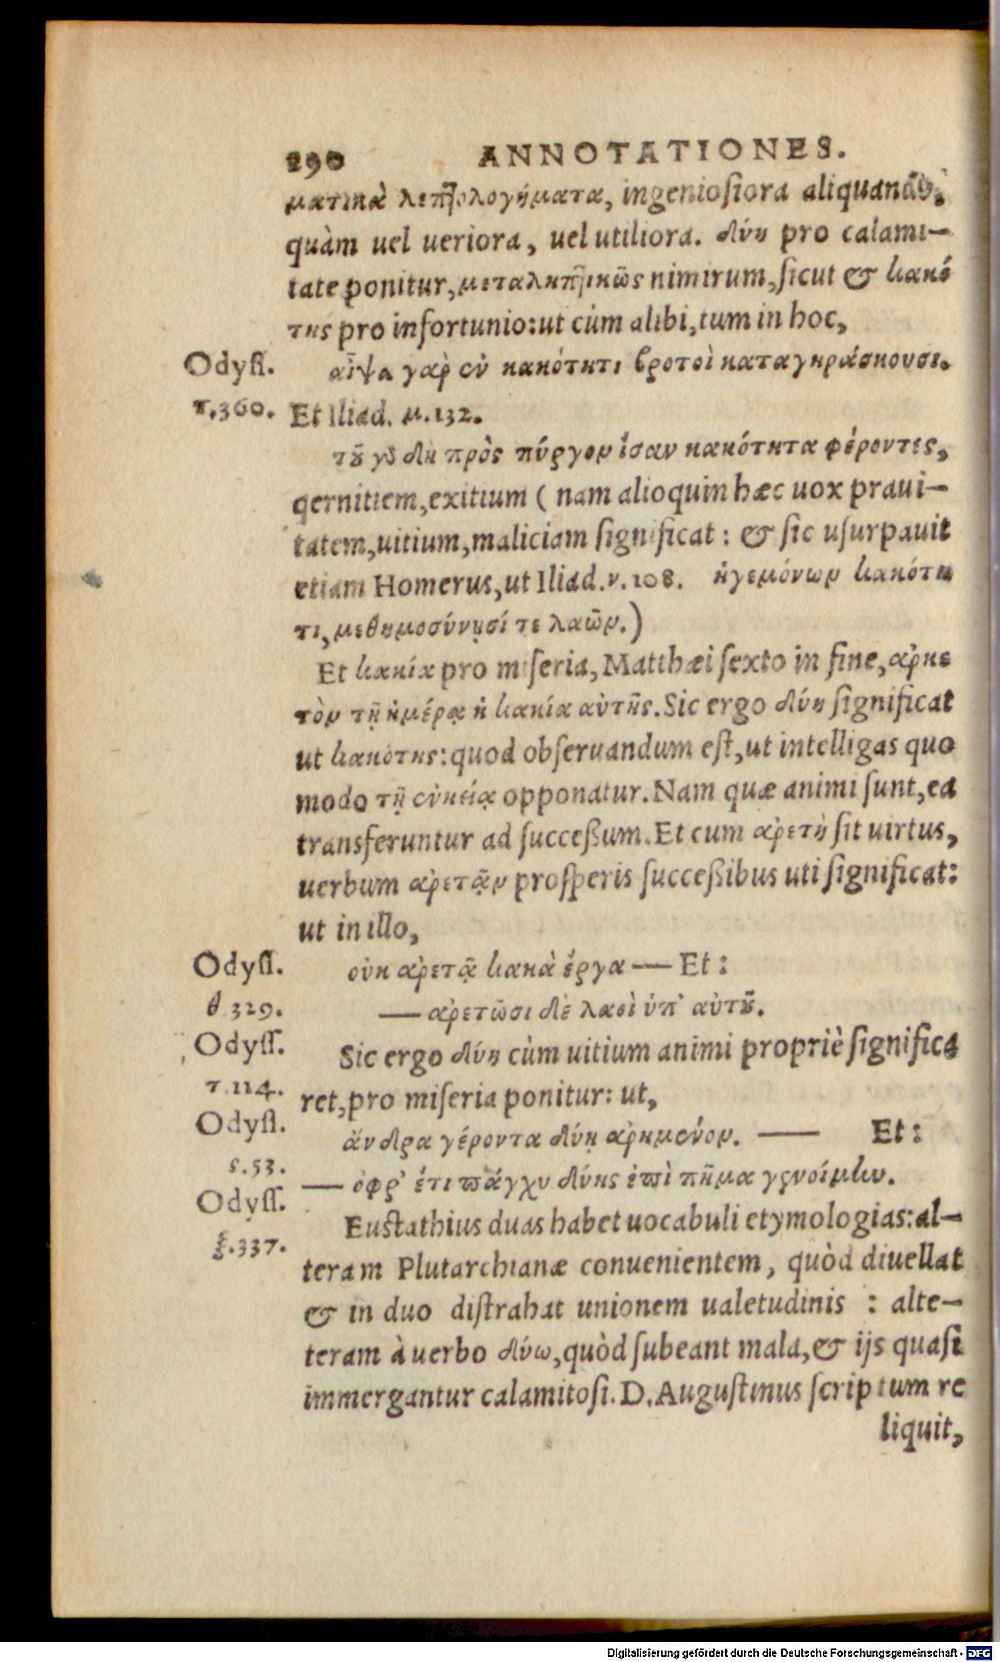 290 ANNOTATIONES.
ματικὰ λεπτολογήματα, ingeniosiora aliquandò,
quàm uel ueriora, uel utiliora. δύη pro calami-
tate ponitur, μεταληπτικῶς nimirum, sicut & κακό
της pro infortunio: ut cùm alibi, tum in hoc,
Odyss. αἶψα γὰρ ἐν κακότητι βροτοὶ καταγηράσκουσι.
τ.360. Et Iliad. μ.132.
τοῦ γδ δὴ πρὸς πύργον ἴσαν κακότητα φέροντες,
qernitiem, exitium ( nam alioquin hæc uox praui-
tatem, uitium, maliciam significat: & sic usurpauit
etiam Homerus, ut Iliad. ν. 108. ἡγεμόνων κακότη
τι, μεθημοσύνῃσί τε λαῶν.)
Et κακία pro miseria, Matthæi sexto in fine, ἀρκε
τὸν τῇ ἡμέρᾳ ἡ κακία αὐτῆς. Sic ergo δύη significat
ut κακότης: quod obseruandum est, ut intelligas quo
modo τῇ ἐνηείᾳ opponatur. Nam quæ animi sunt, ea
transferuntur ad successum. Et cum ἀρετὴ sit uirtus,
uerbum ἀρετᾷν prosperis successibus uti significat:
ut in illo,
Odyss. οὐκ ἀρετᾷ κακὰ ἔργα — Et:
θ 329. — ἀρετῶσι δὲ λαοὶ ὑπ' αὐτοῦ.
Odyss. Sic ergo δύη cùm uitium animi propriè significa
τ.114. ret, pro miseria ponitur: ut,
Odyss. ἄνδρα γέροντα δύῃ ἀρημένον. — Et:
ς.53. — ὀφρ' ἔτι πάγχυ δύης ἐπὶ πῆμα γενοίμην.
Odyss. Eustathius duas habet uocabuli etymologias: al-
ξ.337. teram Plutarchianæ conuenientem, quòd diuellat
& in duo distrahat unionem ualetudinis : alte-
teram à uerbo δύω, quòd subeant mala, & ijs quasi
immergantur calamitosi. D. Augustinus scriptum re
liquit,
Digitalisierung gefördert durch die Deutsche Forschungsgemeinschaft - DFG